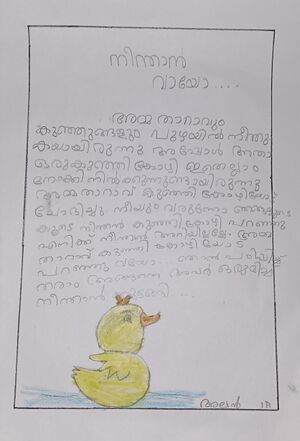 നീന്താൻ
വായോ....
അമ്മ താറാവും
കുഞ്ഞുങ്ങളും പുഴയിൽ നീന്തു
കയായിരുന്നു അപ്പോൾ അതാ
ഒരുകുഞ്ഞി കോഴി ഇതെല്ലാം
നോക്കി നിൽക്കുന്നുണ്ടായിരുന്നു
അമ്മതാറാവ് കുഞ്ഞി കോഴിയോട്
ചോദിച്ചു നീയും വരുന്നോ ഞങ്ങളുടെ
കൂടെ നീന്താൻ കുഞ്ഞി കോഴി പറഞ്ഞു
എനിക്ക് നീന്താൻ അറിയില്ലല്ലോ അമ്മ
താറാവ് കുഞ്ഞി കോഴിയോട്
പറഞ്ഞു വായോ... ഞാൻ പഠിപ്പിച്ച്
തരാം അങ്ങനെ അവർ ഒരുമിച്ച്
നീന്താൻ തുടങ്ങി....
1A